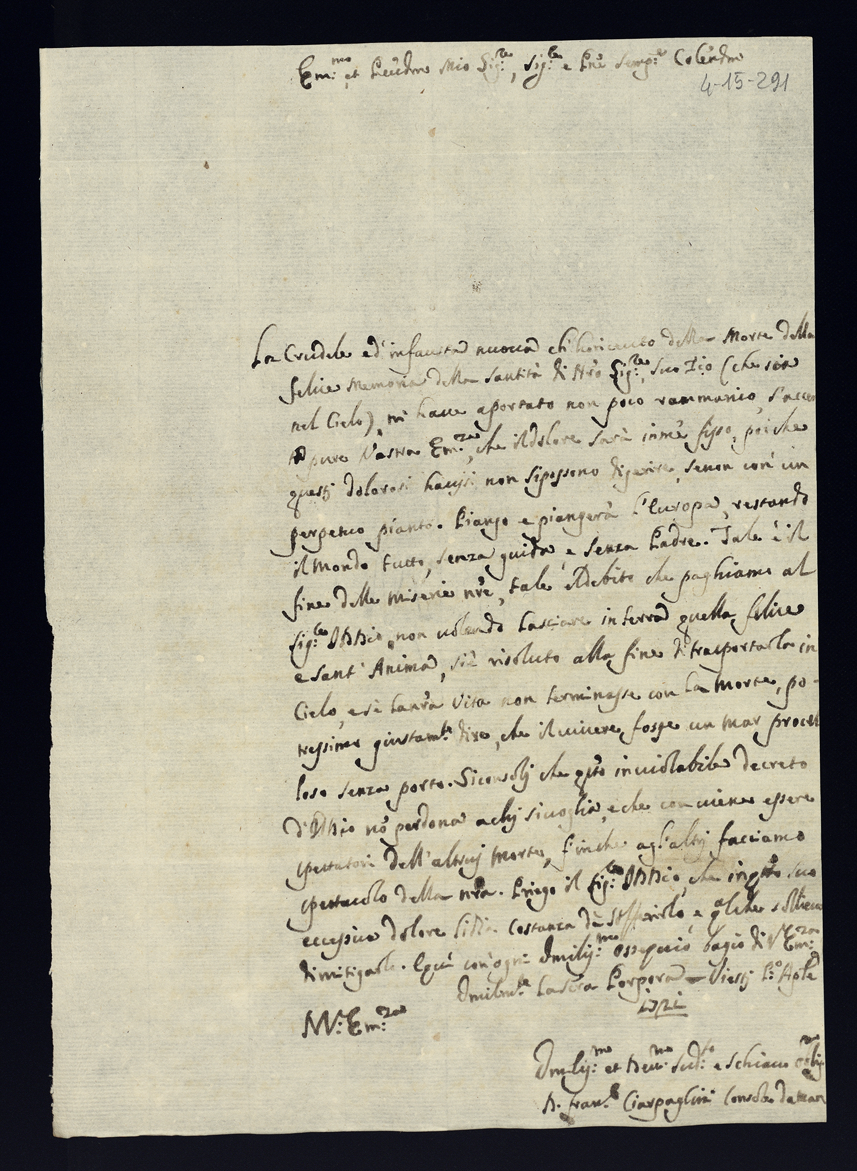 Em:mo et Reu̅dmo Mio Sig:re, Sig:re e Pne Semp:e Colen̅dmo
4-15-291
La Crudele ed' infausta nuoua ch' hò riceuuto della Morte della
felice memoria della Santità di Nro Sig:re, Suo Zio (che sia
nel Cielo), mi haue aportato non poco rammarico, s'accer
ti pure Vostra Em:za, che il dolore sarà in mè fisso, poiche
questi dolorosi non si possono digerire, se non con un
perpetuo pianto. Piange e piangerà l'Europa, restando
il Mondo tutto, senza guida è senza Padre. Tale è il
fine delle miserie nre, tale il debito che paghiamo al
Sig:re Iddio, non uolendo lasciare in terra quella felice
e sant' Anima, si è risoluto alla fine di trasportarla in
Cielo, e sè la nra Vita non terminasse con la Morte, po-
tressimo giustamte dire, che il uiuere, fosse un mar procel
loso senza porto. Si consoli che qsto inuiolabile decreto
d'Iddio nō perdona a chi si uoglia, e che conuiene essere
spettatori dell'altrui Morte, finche agl'altri facciamo
spettacolo della nra. Priego il Sig:re Iddio, che in qsto suo
eccessiuo dolore li dia Costanza di soffrirlo, e qlche sollieuo
di mitigarlo. E quì con ogni Vmiliss:mo ossequio bagio di V. Em:za
Vmilmte la Sacra Porpora = Viesti P:o Aple
1721
Di V: Em:za
Vmiliss:mo et Deu:mo Seru:e e Schiauo oblig:mo
D. Fran:co Ciarpaglini Console